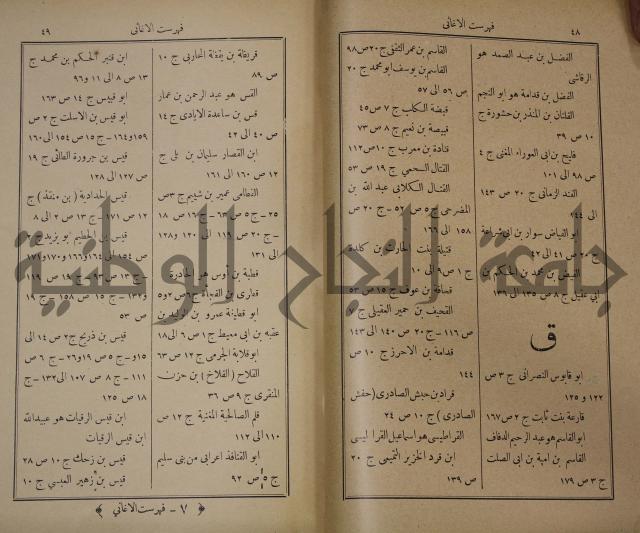 ٤٨
فهرست الاغانى
الفضل بن عبد الصمد هو
الرقاشى
الفضل بن قدامة هو ابو النجم
الفلتان بن المنذر بن حشورة ج
١٠ ص ٣٩
فليح بن ابى العوراء المغنى ج ٤
ص ٩٨ الى ١٠١
الفند الزمانى ج ٢٠ ص ١٤٣
الى ١٤٤
ابو الفياض سوار بن ابى شراعة
ج ٢٠ ص ٤١ الى ٤٢
الفيض بن محمد بن الحكم بن
ابى عقيل ج ٨ ص ١٣٥ الى ١٣٩
ق
ابو قابوس النصرانى ج ٣ ص
١٢٢ و ١٢٥
قارعة بنت ثابت ج ٢ ص ١٦٧
ابو القاسم هو عبد الرحيم الدفاف
القاسم بن امية بن ابى الصلت
ج ٣ ص ١٧٩
القاسم بن عمر الثقفى ج ٢٠ ص ٩٨
القاسم بن يوسف ابو محمد ج ٢٠
ص ٥٦ الى ٥٧
قبضة الكلب ج ٧ ص ٤٥
قبيصة بن نعيم ج ٨ ص ٧٣
قتادة بن معرب ج ١٠ ص ١١٢
القتال السحمى ج ١٩ ص ٥٣
القتال الكلابى عبد الله بن
المضرحى ج ٥ ص ٥٢ - ج ٢٠ ص
١٥٨ الى ١٦٦
قتيلة بنت الحارث بن كلدة
ج ١ ص ٩ الى ١٠
قحافة بن عوف ج ١٥ ص ٥٣
القحيف بن حمير العقيلى ج ٧
ص ١١٦ - ج ٢٠ ص ١٤٠ الى ١٤٣
قدامة بن الاحرز ج ١٠ ص
١٤٤
قراد بن حبش الصادرى (حفش
الصادرى) ج ١٠ ص ٢٤
القراطيسى هو اسماعيل القراطيسى
ابن قرد الخنزير التميمى ج ٢٠
ص ١٣٩
فهرست الاغانى
٤٩
قريقة بن بقثة الحاربى ج ١٠
ص ٨٩
القس هو عبد الرحمن بن عمار
قس بن ساعدة الايادى ج ١٤
ص ٤٠ الى ٤٢
ابن القصار سليمان بن على ج
١٢ ص ١٦٠ الى ١٦١
القطامى عمير بن شييم ج ٣ ص
٢٥ - ج ٥ ص ٦٣ - ج ١٦ ص ١٨
- ج ٢٠ ص ١١٩ الى ١٢٠ و ١٢٨
الى ١٣١
قطبة بن اوس هو الحادرة
قطرى بن الفجاءة ج ٦ ص ٢ و ٥
ابو قطيفة عمرو بن الوليد بن
عقبة بن ابى معيط ج ١ ص ٦ الى ١٨
ابو قلابة الجرمى ج ١٢ ص ٦٣
القلاح (القلاخ) بن حزن
المنقرى ج ٩ ص ٣٦
قلم الصالحية المغنية ج ١٢ ص
١١٠ الى ١١٢
ابو القنافذ اعرابى من بنى سليم
ج ٥ ص ٩٢
ابن قنبر الحكم بن محمد ج
١٣ ص ٨ الى ١١ و ٩٦
ابو قيس ج ١٤ ص ١٦٣
ابو قيس بن الاسلت ج ٢ ص
١٥٩ و ١٦٤ - ج ١٥ ص ١٥٤ الى ١٦٠
قيس بن جرورة الطائى ج ١٩
ص ١٢٧ الى ١٢٨
قيس بن الحدادية (بن منقذ) ج
١٢ ص ١٧١ - ج ١٣ ص ٢ الى ٨
قيس بن الخطيم ابو يزيد ج ٢
ص ١٥٤ الى ١٦٤ و ١٦٦ و ١٧٠ و ١٧١
- ج ١٣ ص ٩٣ - ج ١٩ ص ١١٩
و ١٣٢ - ج ١٥ ص ١٥٨ - ج ١٩
ص ٥٣
قيس بن ذريح ج ٢ ص ١٤ الى
١٥ و - ج ٥ ص ١٩ و ٢٦ - ج ٦ ص
١١١ - ج ٨ ص ١٠٧ الى ١٣٢ - ج
١٨ ص ١٢٥
ابن قيس الرقيات هو عبيد الله
ابن قيس الرقيات
قيس بن زحك ج ١٠ ص ٢٨
قيس بن زهير العبسى ج ١٠
٧ - فهرست الاغانى
جامعة النجاح الوطنية